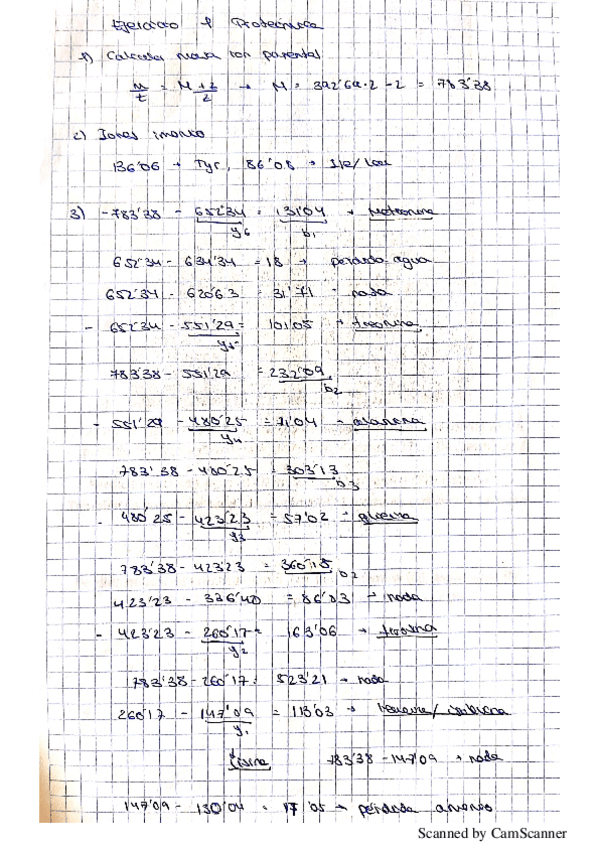 Ejercicio 1 Proteómica
1) Calcular masa ion parental
M/z = M+2/2 → M = 392'69·2 - 2 = 783'38
2) Iones imonio
136'06 → Tyr, 86'08 → Ile/Leu
3) -783'38 - 652'34 = 131'04 → Metionina
y6 b1
652'34 - 634'34 = 18 → perdida agua
652'34 - 620'63 = 31'71 - nada
- 652'34 - 551'29 = 101'05 → treonina
y5
783'38 - 551'29 = 232'09
b2
- 551'29 - 480'25 = 71'04 - alanina
y4
783'38 - 480'25 = 303'13
b3
- 480'25 - 423'23 = 57'02 - glicina
y3
783'38 - 423'23 = 360'15
b2
423'23 - 336'40 = 86'83 → nada
- 423'23 - 260'17 = 163'06 → tirosina
y2
783'38 - 260'17 = 523'21 → nada
260'17 - 147'09 = 113'03 → leucina/isoleucina
y1
Lisina 783'38 - 147'09 → nada
147'09 - 130'04 = 17'05 → perdida amonio
Scanned by CamScanner